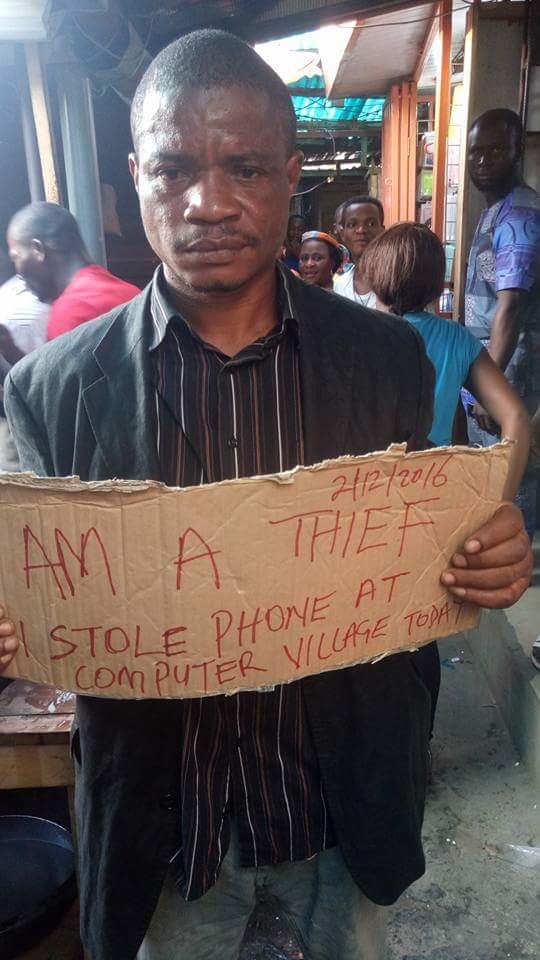 2/12/2016
AM A THIEF
I STOLE PHONE AT
COMPUTER VILLAGE TODAY